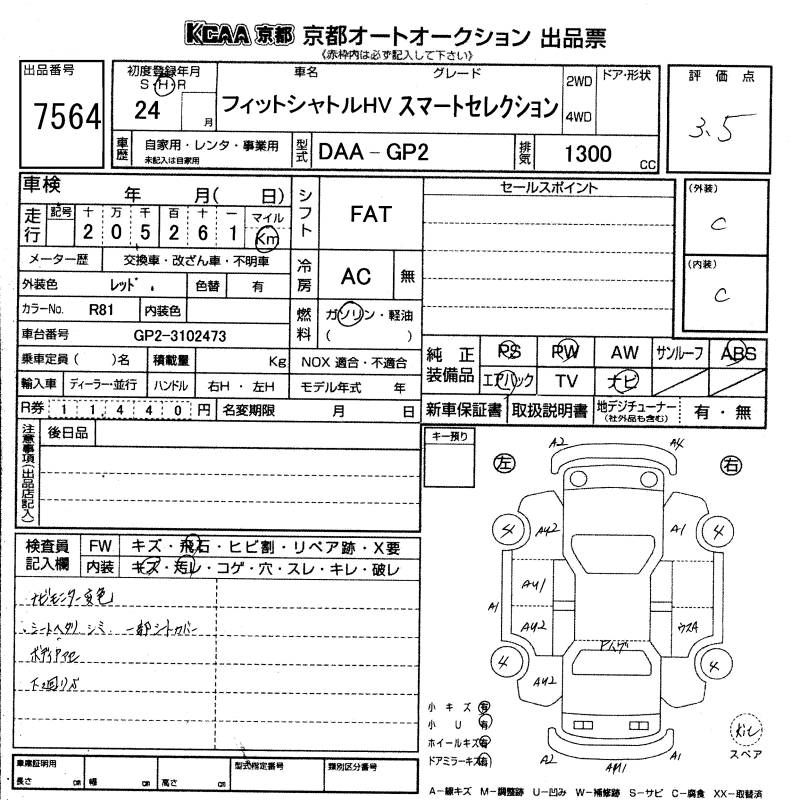 KCAA 京都 京都オートオークション 出品票
《赤枠内は必ず記入して下さい》
出品番号
7564
初度登録年月
S・H・R
24
月
車名
グレード
フィットシャトルHV スマートセレクション
2WD
4WD
ドア・形状
評価点
3.5
車歴
自家用・レンタ・事業用
未記入は自家用
型式
DAA－GP2
排気
1300
CC
車検
年
月(
日)
走行
記号
十
万
千
百
十
一
マイル
2
0
5
2
6
1
Km
メーター歴
交換車・改ざん車・不明車
外装色
レッド
色替
有
カラーNo.
R81
内装色
車台番号
GP2-3102473
乗車定員(
)名
積載量
Kg
輸入車
ディーラー・並行
ハンドル
右H・左H
R券
1 1 4 4 0
円
名変期限
月
日
シフト
FAT
冷房
AC
無
燃料
ガソリン・軽油
(
)
NOX 適合・不適合
モデル年式
年
セールスポイント
(外装)
C
(内装)
C
純正装備品
PS
PW
AW
サンルーフ
ABS
エアバック
TV
ナビ
新車保証書
取扱説明書
地デジチューナー
(社外品も含む)
有・無
注意事項(出品店記入)
後日品
キー預り
左
右
A2
A4
4
A42
A1
4
A41
A1
A42
4
A42
4
A2
A1
検査員記入欄
FW
キズ・飛石・ヒビ割・リペア跡・X要
内装
キズ・汚レ・コゲ・穴・スレ・キレ・破レ
ナビモニター変色
シートヘタリ シミ 一部シートカバー
下回りサビ
小キズ 有
小U 有
ホイールキズ 有
ドアミラーキズ 有
スペア
車庫証明用
長さ
cm
幅
cm
高さ
cm
型式指定番号
類別区分番号
A－線キズ M－調整跡 U－凹み W－補修跡 S－サビ C－腐食 XX－取替済